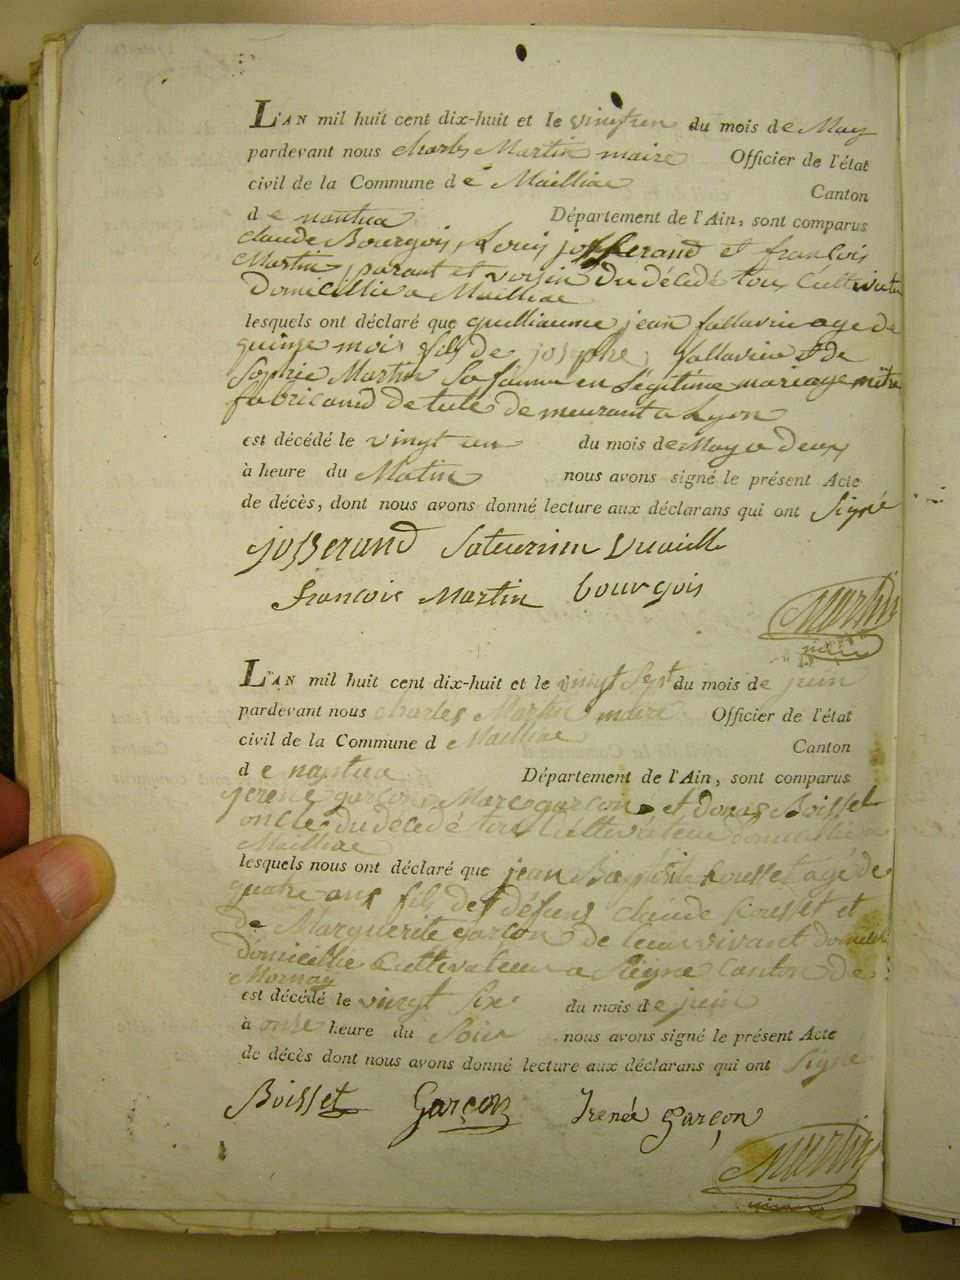 L'AN mil huit cent dix-huit et le vingt un du mois de May
pardevant nous charles Martin maire Officier de l'état
civil de la Commune de Mailliac Canton
de nantua Département de l'Ain, sont comparus
claude Bourgois, Louis josserand et francois
Martin parant et voisin du décedé tous Cultivateur
Domicillié a Mailliac
lesquels ont déclaré que guilliaume jean fallavier age de
quinze mois fils de josephe fallavier et de
Sophie Martin Sa famme en Légitime mariage
fabricand de tule de meurant a Lyon
est décédé le vingt un du mois de May a deux
à heure du Matin nous avons signé le présent Acte
de décès, dont nous avons donné lecture aux déclarans qui ont Signé
josserand Saturnin Vuaille
francois Martin bourgois
Martin
maire
L'AN mil huit cent dix-huit et le vingt Sept du mois de juin
pardevant nous charles Martin maire Officier de l'état
civil de la Commune de Mailliac Canton
de nantua Département de l'Ain, sont comparus
garçon, Marc garçon et Boisset
oncles du decedé tous Cultivateur domicillié a
Mailliac
lesquels nous ont déclaré que jean Baptiste Rousset agé de
quatre ans fils de défens claude Rousset et
de Marguerite Garçon de leur vivant
domicillie Cultivateur a Canton de
Mornay
est décédé le vingt Six du mois de juin
à onze heure du Soir nous avons signé le présent Acte
de décès dont nous avons donné lecture aux déclarans qui ont Signé
Boisset Garçon Irenée garçon
Martin
maire